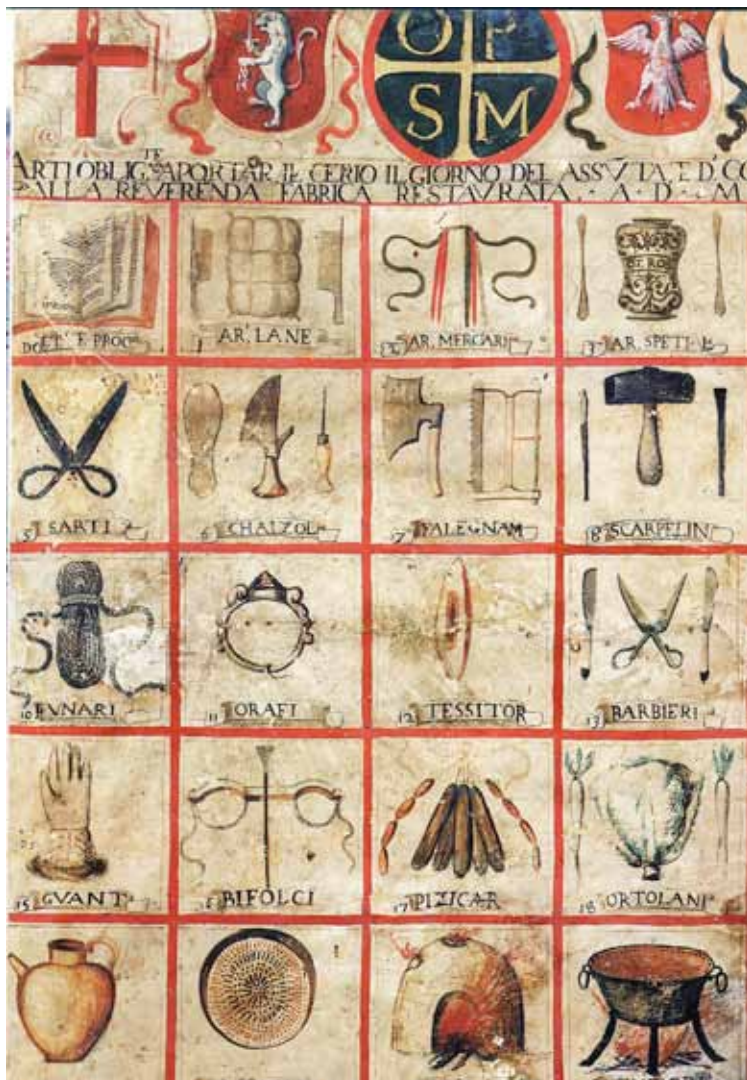 O P
S M
ARTI OBLIG.TE A PORTAR IL CERIO IL GIORNO DEL ASSVTA, E D' CO
ALLA REVERENDA FABRICA RESTAVRATA · A · D · M
1 AR. LANE
AR. MERCARI
3 AR. SPETI
5 SARTI
6 CHALZOL
7 FALEGNAM
8 SCARPELIN
10 FVNARI
11 ORAFI
12 TESSITOR
13 BARBIERI
15 GVANT
16 BIFOLCI
17 PIZICAR
18 ORTOLANI